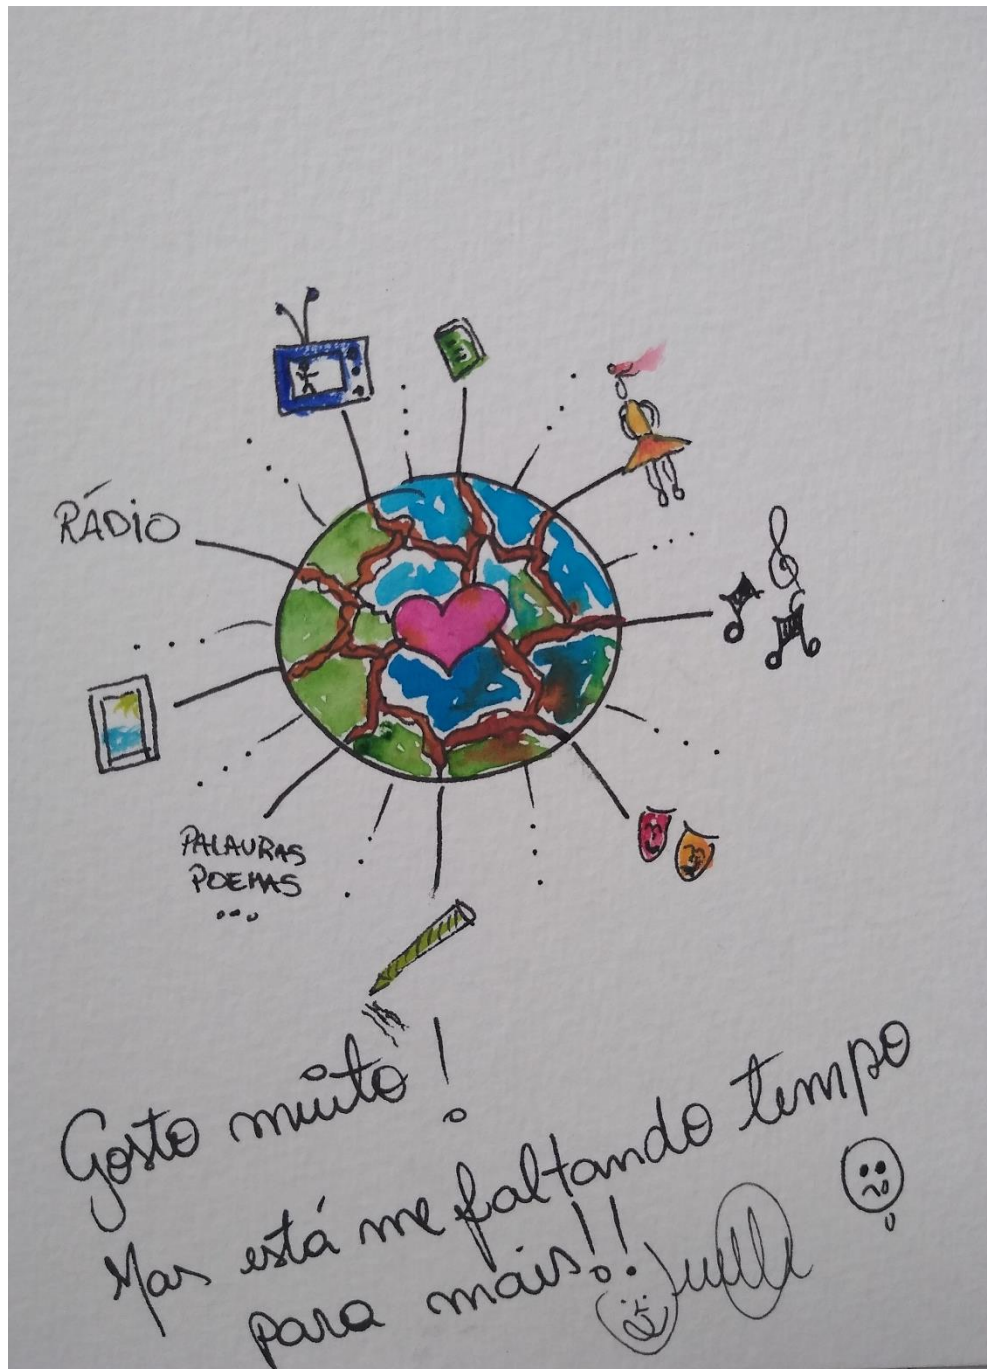 RÁDIO
PALAVRAS
POEMAS
...
Gosto muito!
Mas está me faltando tempo
para mais!!